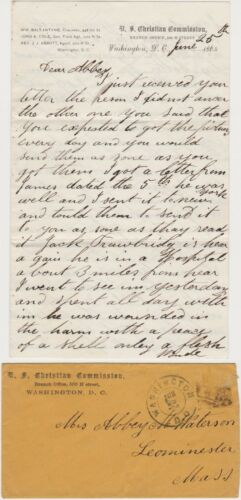 WM. BALLANTYNE, Chairman,
U. S. Christian Commission,
BRANCH OFFICE, 500 H STREET
Washington, D. C. June 25th 186
Dear Abbey
I just received your
letter the person I did not anser
the other one you said that
you expected to got the
every day and you would
send them as sone as you
got them I got a letter from
James dated the 5th he was
well and I sent it to
york
and tould them to send it
to you as sone as thay read
it Jack Strawbridg is hear
a gain he is in a Hospital
a bout 3 miles from hear
I went to see im yesterday
and spent all day with
im he was wounded in
the harm with a peacy
of a Shell onley a flesh
U. S. Christian Commission.
Branch Office, 500 H street,
WASHINGTON, D. C.
WASHINGTON
Mrs Abbey M Waterson
Leominester
Mass